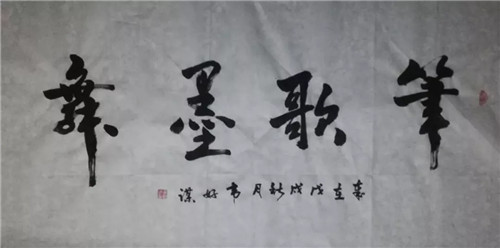 筆歌墨舞
歲在戊戌秋月韦好谋